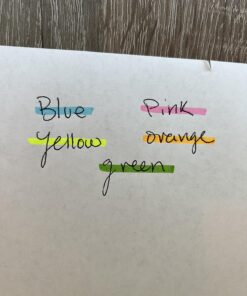 Blue Pink
yellow orange
green